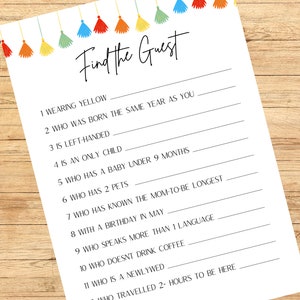 Find the Guest
1 WEARING YELLOW
2 WHO WAS BORN THE SAME YEAR AS YOU
3 IS LEFT-HANDED
4 IS AN ONLY CHILD
5 WHO HAS A BABY UNDER 9 MONTHS
6 WHO HAS 2 PETS
7 WHO HAS KNOWN THE MOM-TO-BE LONGEST
8 WITH A BIRTHDAY IN MAY
9 WHO SPEAKS MORE THAN 1 LANGUAGE
10 WHO DOESN'T DRINK COFFEE
11 WHO IS A NEWLYWED
WHO TRAVELLED 2+ HOURS TO BE HERE